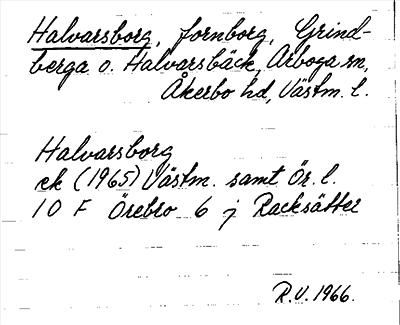 Halvarsborg, fornborg, Grind-
berga o. Halvarsbäck, Arboga sn,
Åkerbo hd, Västm. l.
Halvarsborg
ek (1965) Västm. samt Ör. l.
10 F Örebro 6 j Racksätter
R.V. 1966.